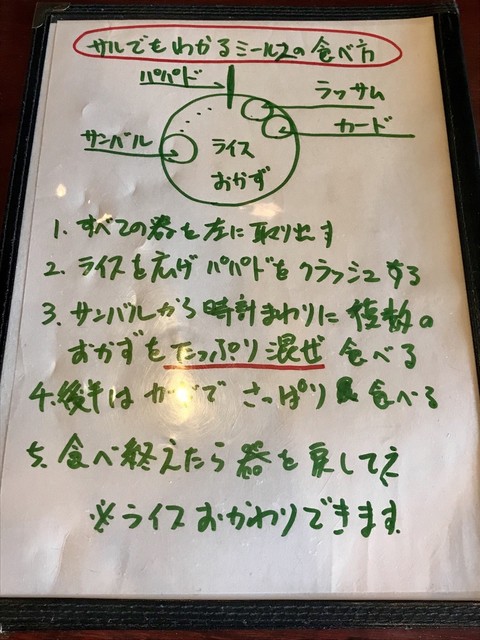 サルでもわかるミールスの食べ方
パパド
ラッサム
カード
サンバル
ライス
おかず
1. すべての器を左に取り出す
2. ライスを広げ パパドをクラッシュする
3. サンバルから時計まわりに複数の
おかずをたっぷり混ぜ 食べる
4. 後半は カードで さっぱり 食べる
5. 食べ終えたら器を戻してネ
※ライスおかわりできます